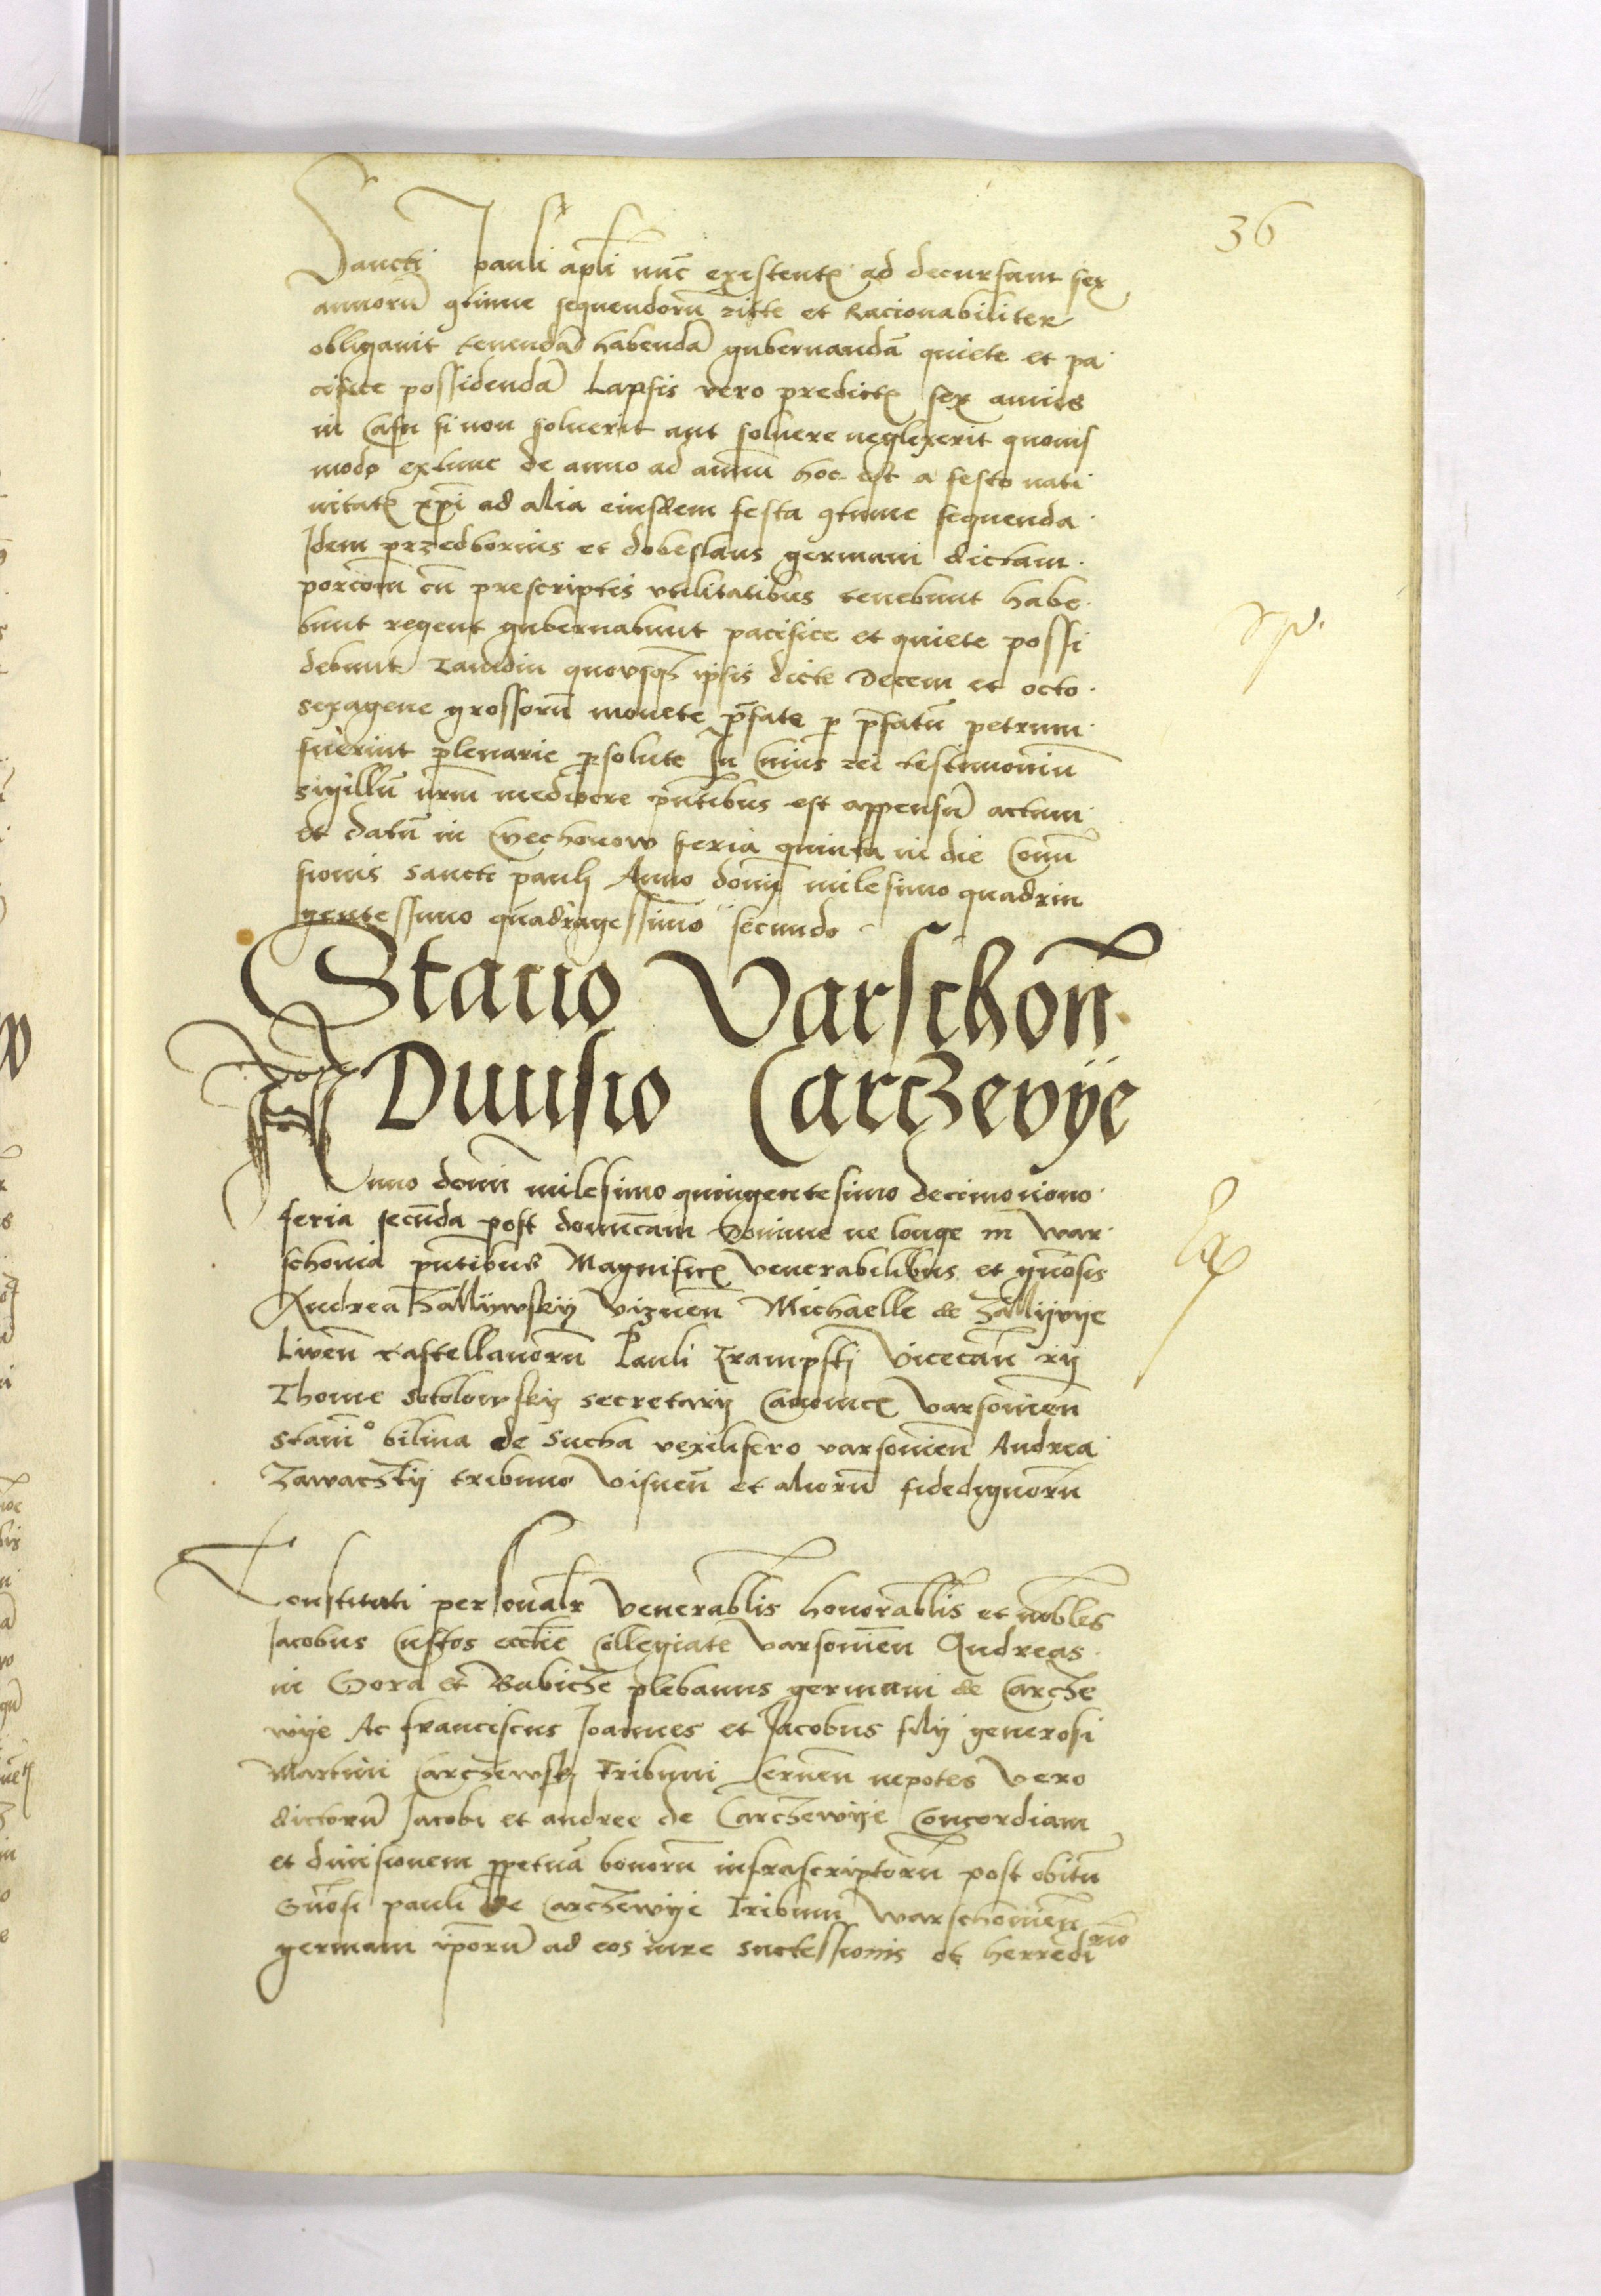 36
Sancti pauli apli nūc existent͛ ad decursam sex
annorū ꝯtinue sequendorū ritte et Racionabiliter
obligauit tenendā habendā gubernandā quiete et pa
cifice possidendā Lapsis vero predict͛ sex annis
in Casu si non soluerit aut soluere neglexerit quouis
modo extunc de anno ad annū hoc est a festo nati
uitat͛ xp̄i ad alia eiusdem festa ꝯtinue sequenda
Idem przedborius et dobeslaus germani dictam
porcōm cū prescriptis vtilitatibus tenebunt habe
bunt regent gubernabunt pacifice et quiete possi
debunt Tamdiu quousqꝫ ipsis dicte Decem et octo
sexagene grossorū monete p̄fate ꝑ p̄fatū petrum
fuerint plenarie ꝑsolute In Cuius rei testimoniū
sigillū nr̄m mediocre pn̄tibus est appensū actum
et datū in Czechonow feria quinta in die Conū
sionis sancti pauli Anno domī milesimo quadrin
gentessimo quadragessimo secundo
Stacio Varschon̄
Diuisio Carczevÿe
Anno domī milesimo quingentesimo decimonono
feria secūda post domīcam Domine ne longe in war
schonia pn̄tibus Magnific͛ Venerabilibus et gn̄osis
Andrea Zallÿwskÿ Viznen̄ Michaelle de Zallÿvÿe
Liwen̄ castellanorū Pauli Trampskÿ Vicecan̄ rÿ
Thome sobolowskÿ secretarÿ Canonic͛ Varsonien̄
stanī° bilina de sucha vexilifero varsonien̄ Andrea
Zawaczkÿ tribuno Visnen̄ et aliorū fidedignorū
Ex
Constituti personalr̄ Venerabl̄is honorabl̄is et nobl̄es
Jacobus Custos eccl̄ie Collegiate Varsonien̄ Andreas
in Gora et Babicze plebanus germani de Carcze
wÿe Ac franciscus Joannes et Jacobus filÿ generosi
Martini Carczewskÿ Tribuni Cernen̄ nepotes Vero
dictorū Jacobi et andree de Carczewÿe Concordiam
et diuisionem ꝑpetuā bonorū infrascriptorū post obitū
Gn̄osi pauli de Carczewÿe Tribuni warschonien̄
germani ip̄orū ad eos iure successionis et herredi
rio